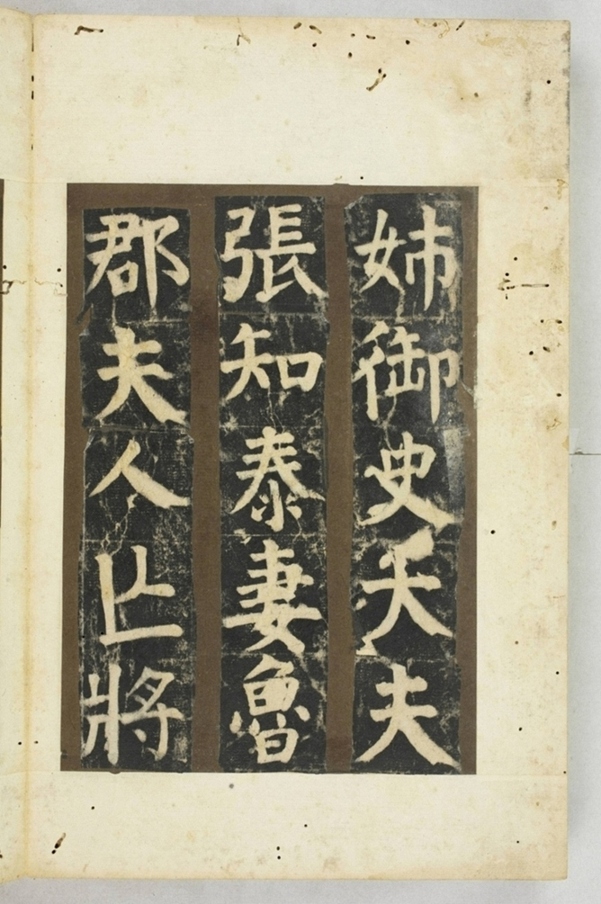 姉御史大夫
張知泰妻魯
郡夫人亡將